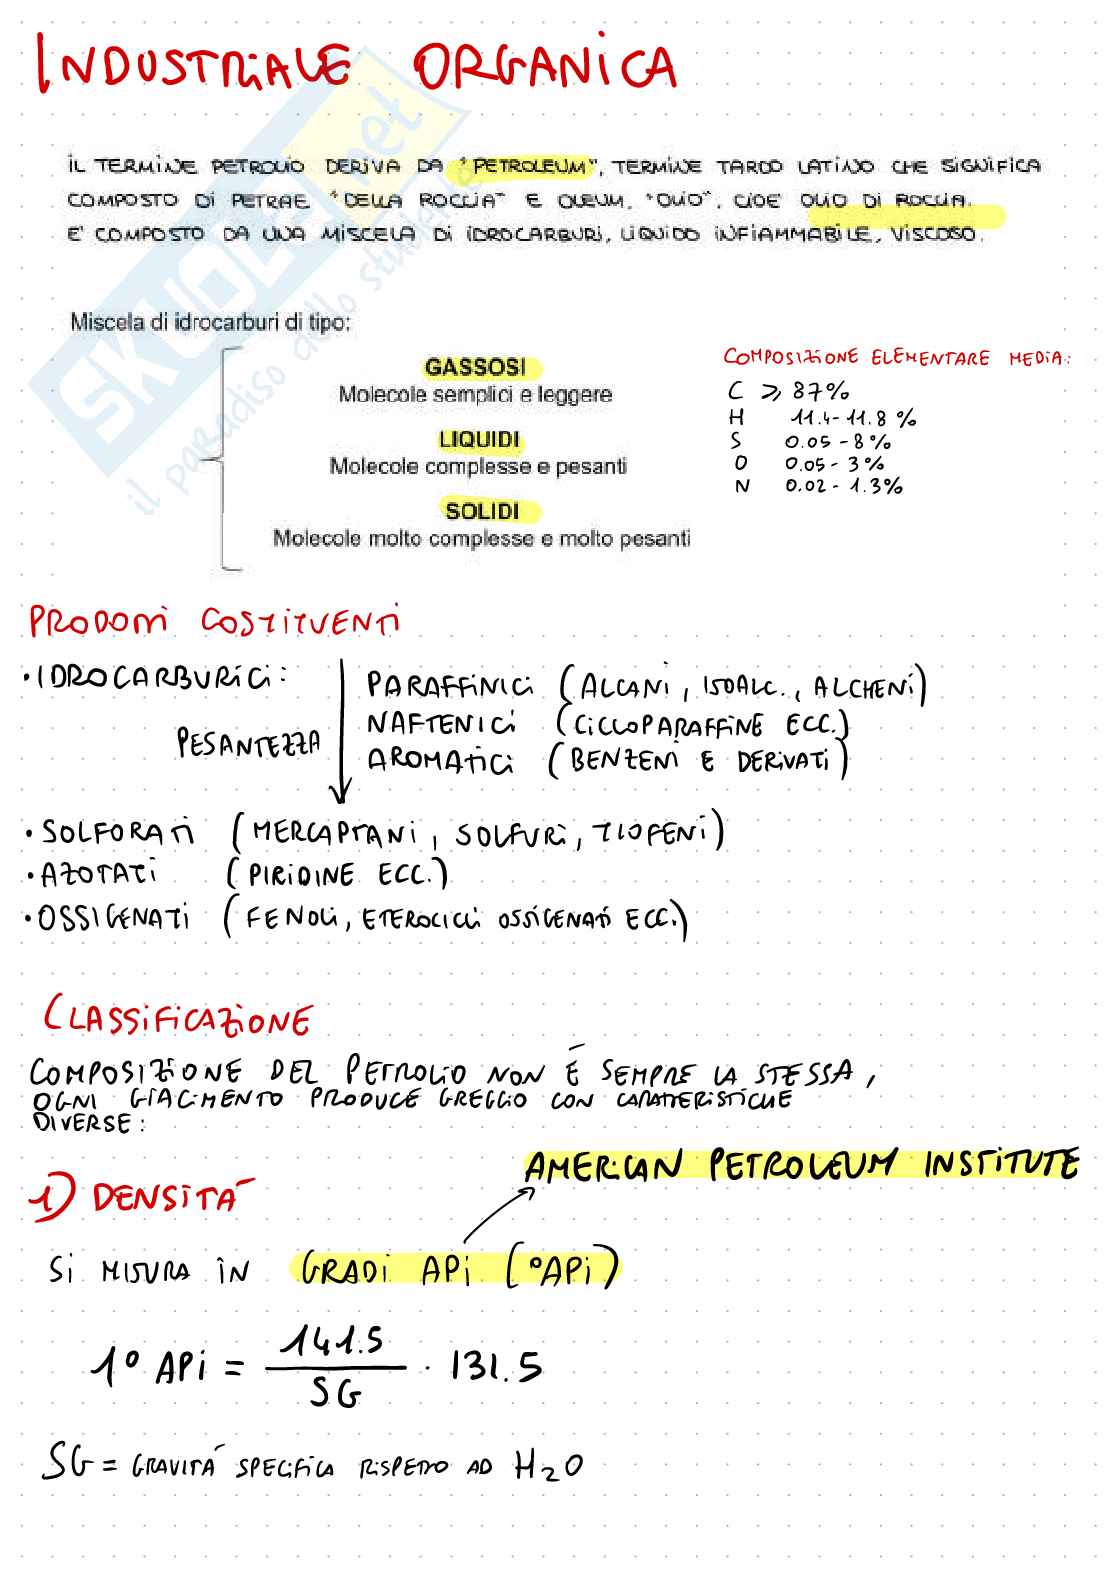 INDUSTRIALE ORGANICA
IL TERMINE PETROLIO DERIVA DA "PETROLEUM", TERMINE TARDO LATINO CHE SIGNIFICA
COMPOSTO DI PETRAE "DELLA ROCCIA" E OLEUM, "OLIO", CIOE' OLIO DI ROCCIA.
E' COMPOSTO DA UNA MISCELA DI IDROCARBURI, LIQUIDO INFIAMMABILE, VISCOSO.
Miscela di idrocarburi di tipo:
GASSOSI
Molecole semplici e leggere
LIQUIDI
Molecole complesse e pesanti
SOLIDI
Molecole molto complesse e molto pesanti
COMPOSIZIONE ELEMENTARE MEDIA:
C ⩾ 87%
H 11.4-11.8 %
S 0.05-8%
O 0.05-3%
N 0.02-1.3%
PRODOTTI COSTITUENTI
• IDROCARBURICI:
PESANTEZZA
PARAFFINICI (ALCANI, ISOALC., ALCHENI)
NAFTENICI (CICLOPARAFFINE ECC.)
AROMATICI (BENZENI E DERIVATI)
• SOLFORATI (MERCAPTANI, SOLFURI, TIOFENI)
• AZOTATI (PIRIDINE ECC.)
• OSSIGENATI (FENOLI, ETEROCICLI OSSIGENATI ECC.)
CLASSIFICAZIONE
COMPOSIZIONE DEL PETROLIO NON É SEMPRE LA STESSA,
OGNI GIACIMENTO PRODUCE GREGGIO CON CARATTERISTICHE
DIVERSE:
AMERICAN PETROLEUM INSTITUTE
1) DENSITÁ
SI MISURA IN GRADI API (°API)
1° API = 141.5 / SG · 131.5
SG = GRAVITÁ SPECIFICA RISPETTO AD H2O
SKUOLA.net
il paradiso dello studente